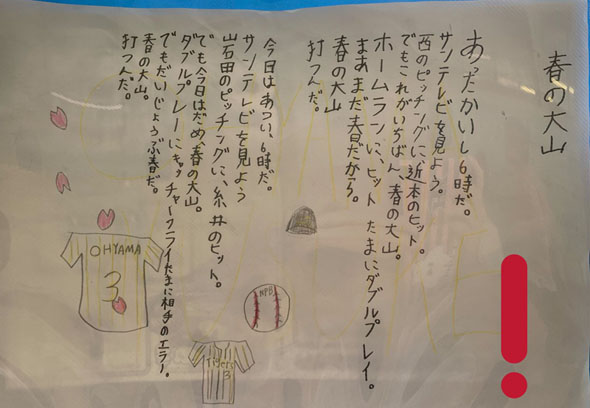 春の大山
あったかい、6時だ。
サンテレビを見よう。
西のピッチングに、近本のヒット。
でもこれがいちばん、春の大山。
ホームランに、ヒット たまにダブルプレイ。
まあまだ春だから。
春の大山
打つんだ。
今日はあつい、6時だ。
サンテレビを見よう
岩田のピッチングに、糸井のヒット。
でも今日はだめ、春の大山。
ダブルプレーにキャッチャーフライたまに相手のエラー。
でもだいじょうぶ春だ。
春の大山。
打つんだ。
OHYAMA
3
NPB
Tigers
3